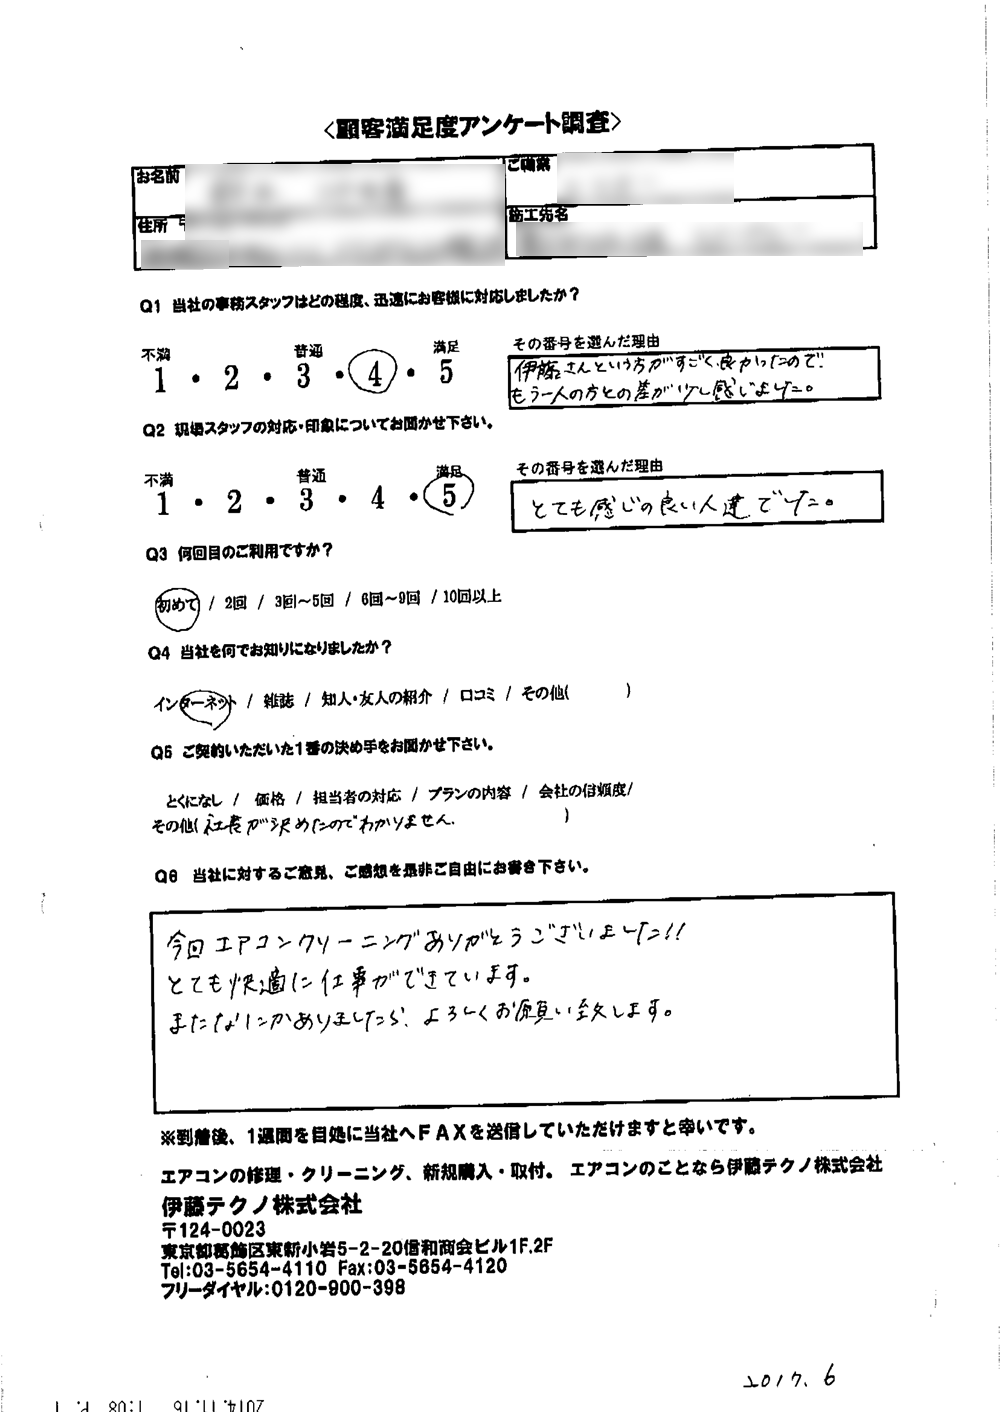 <顧客満足度アンケート調査>
お名前
ご職業
住所 〒
施工先名
Q1 当社の事務スタッフはどの程度、迅速にお客様に対応しましたか?
不満 普通 満足
1・2・3・4・5
その番号を選んだ理由
伊藤さんという方がすごく良かったので
もう一人の方との差が少し感じました。
Q2 現場スタッフの対応・印象についてお聞かせ下さい。
不満 普通 満足
1・2・3・4・5
その番号を選んだ理由
とても感じの良い人達でした。
Q3 何回目のご利用ですか?
初めて / 2回 / 3回~5回 / 6回~9回 / 10回以上
Q4 当社を何でお知りになりましたか?
インターネット / 雑誌 / 知人・友人の紹介 / 口コミ / その他( )
Q5 ご契約いただいた1番の決め手をお聞かせ下さい。
とくになし / 価格 / 担当者の対応 / プランの内容 / 会社の信頼度/
その他( 社長が決めたのでわかりません. )
Q6 当社に対するご意見、ご感想を是非ご自由にお書き下さい。
今回エアコンクリーニングありがとうございました!!
とても快適に仕事ができています。
またなにかありましたら、よろしくお願い致します。
※到着後、1週間を目処に当社へFAXを送信していただけますと幸いです。
エアコンの修理・クリーニング、新規購入・取付。 エアコンのことなら伊藤テクノ株式会社
伊藤テクノ株式会社
〒124-0023
東京都葛飾区東新小岩5-2-20信和商会ビル1F.2F
Tel:03-5654-4110 Fax:03-5654-4120
フリーダイヤル:0120-900-398
2017.6
2014.11.16 1:08 P. 1